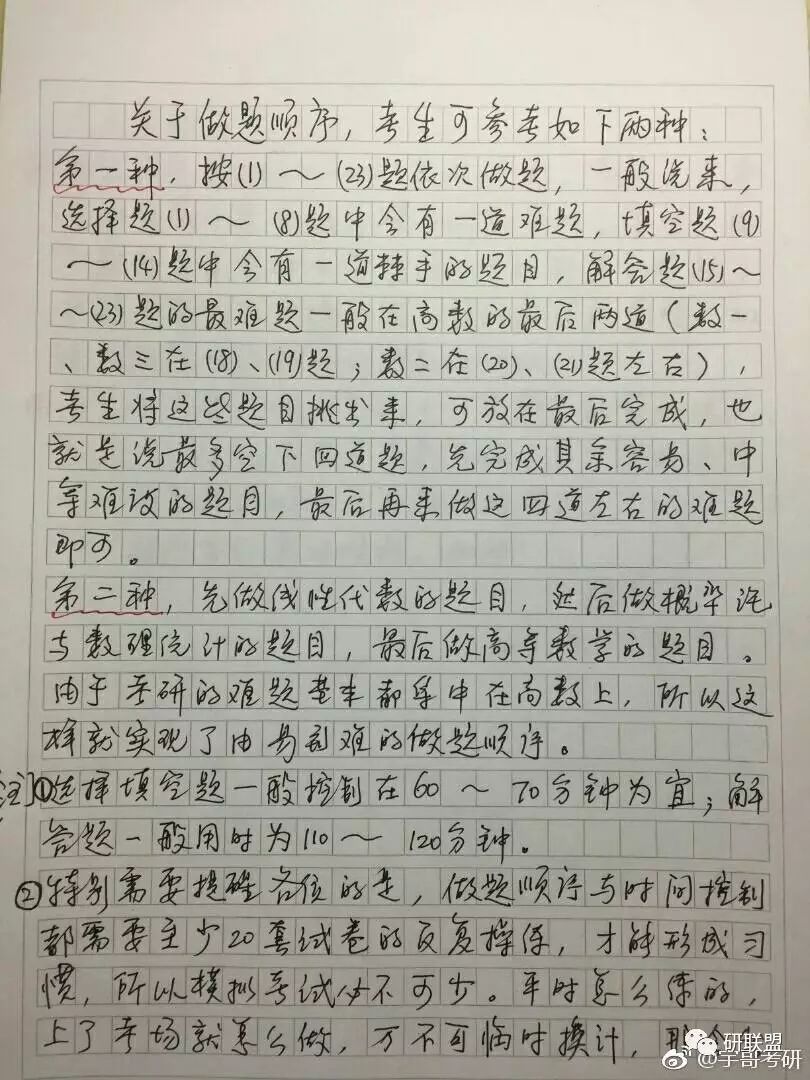 关于做题顺序，考生可参考如下两种：
第一种，按(1)～(23)题依次做题，一般说来，
选择题(1)～(8)题中会有一道难题，填空题(9)
～(14)题中会有一道棘手的题目，解答题(15)～
～(23)题的最难题一般在高数的最后两道（数一
、数三在(18)、(19)题；数二在(20)、(21)题左右），
考生将这些题目挑出来，可放在最后完成，也
就是说最多空下四道题，先完成其余容易、中
等难度的题目，最后再来做这四道左右的难题
即可。
第二种，先做线性代数的题目，然后做概率论
与数理统计的题目，最后做高等数学的题目。
由于考研的难题基本都集中在高数上，所以这
样就实现了由易到难的做题顺序。
注]①选择填空题一般控制在60～70分钟为宜；解
答题一般用时为110～120分钟。
②特别需要提醒各位的是，做题顺序与时间控制
都需要至少20套试卷的反复操练，才能形成习
惯，所以模拟考试必不可少。平时怎么练的，
上了考场就怎么做，万不可临时换计，
研联盟
@宇哥考研